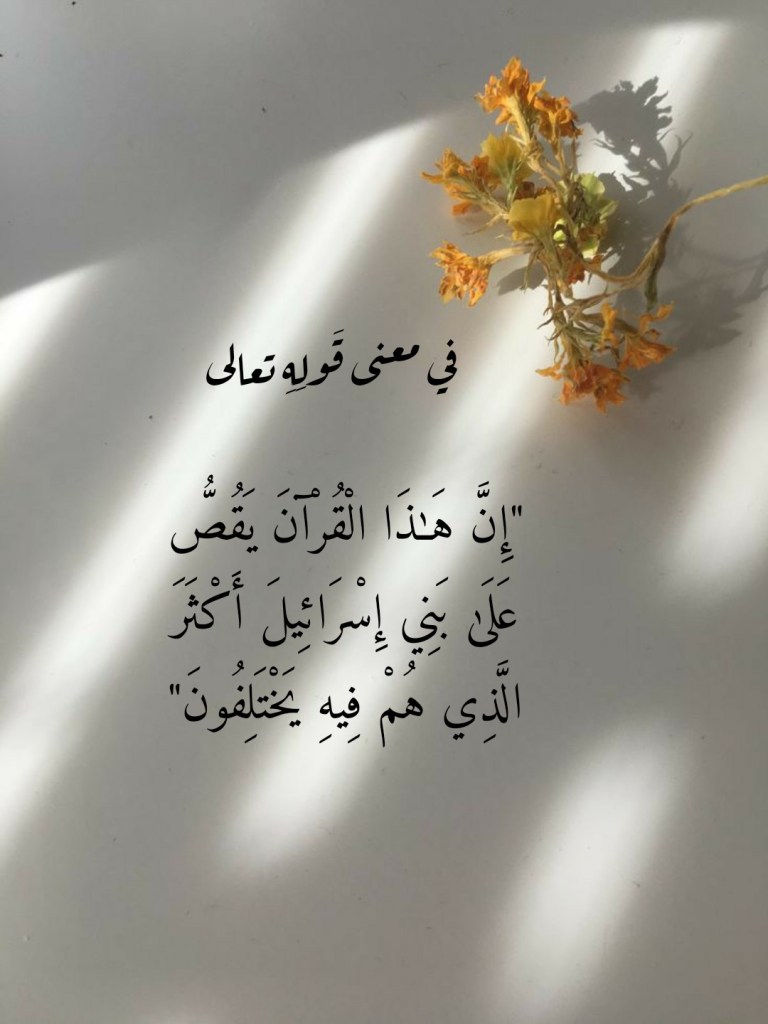 في معنى قَولِهِ تعالى
"إِنَّ هَٰذَا الْقُرْآنَ يَقُصُّ
عَلَىٰ بَنِي إِسْرَائِيلَ أَكْثَرَ
الَّذِي هُمْ فِيهِ يَخْتَلِفُونَ"